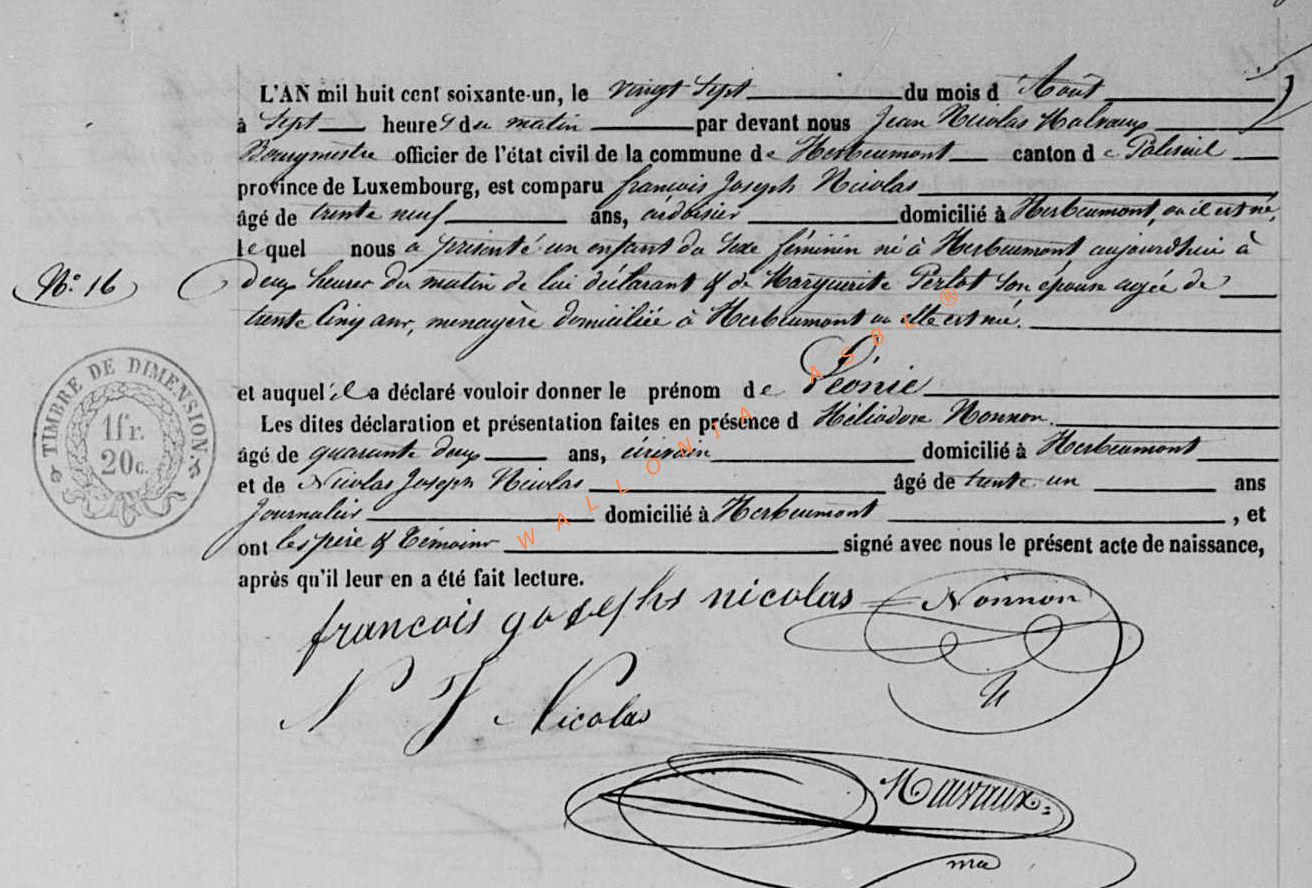 L'AN mil huit cent soixante-un, le vingt Sept du mois d'Août
à Sept heures du matin par devant nous Jean Nicolas
Bourgmestre officier de l'état civil de la commune de Herbeumont canton de Paliseul
province de Luxembourg, est comparu françois Joseph Nicolas
âgé de trente neuf ans, ardoisier domicilié à Herbeumont, ou il est né,
lequel nous a présenté un enfant du Sexe féminin né à Herbeumont aujourdhui à
N° 16
deux heures du matin de lui déclarant & de Marguerite Perlot Son épouse agée de
trente Cinq ans, menagère domiciliée à Herbeumont ou elle est née.
et auquel il a déclaré vouloir donner le prénom de Léonie
Les dites déclaration et présentation faites en présence d Héliodore Nonnon
âgé de quarante deux ans, écrivain domicilié à Herbeumont
et de Nicolas Joseph Nicolas âgé de trente un ans
Journalier domicilié à Herbeumont , et
ont les père & Témoins signé avec nous le présent acte de naissance,
après qu'il leur en a été fait lecture.
TIMBRE DE DIMENSION.
1fr.
20c.
WALLONIA ASBL ®
francois gosephs nicolas Nonnon
N J Nicolas